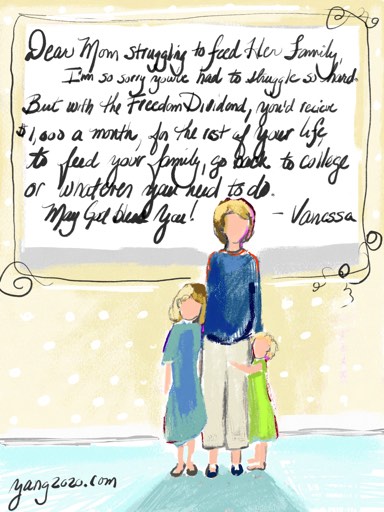 Dear Mom struggling to feed Her Family,
I'm so sorry you've had to struggle so hard.
But with the Freedom Dividend, you'd recieve
$1,000 a month, for the rest of your life,
to feed your family, go back to college
or whatever you need to do.
May God bless You! - Vanessa
yang2020.com